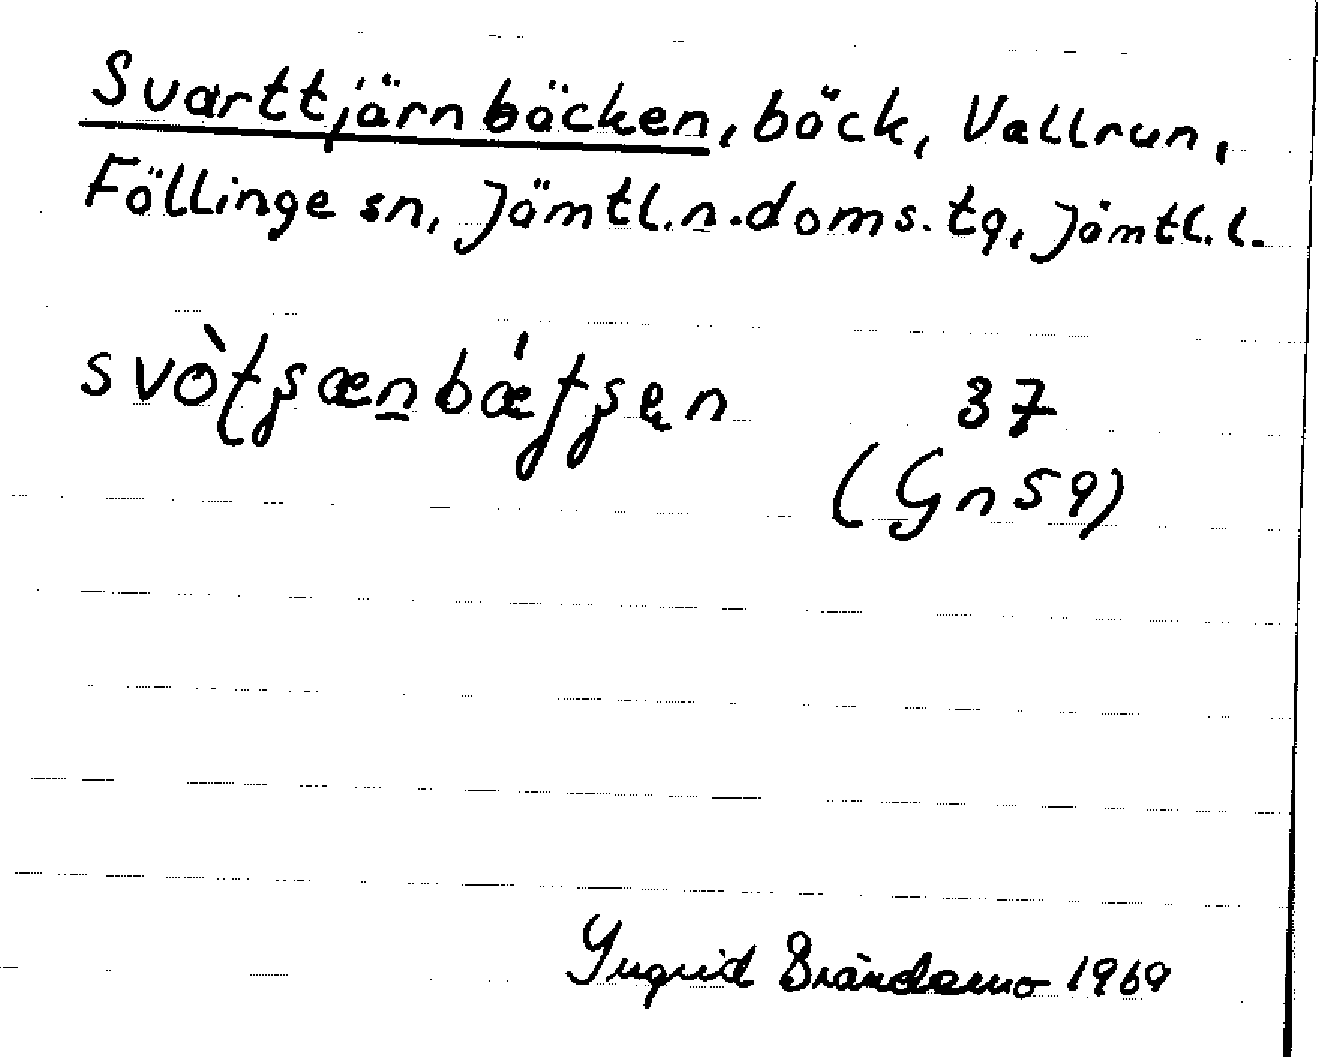 Svarttjärnbäcken, bäck, Vallrun,
Föllinge sn, Jämtl.n.doms.tg, Jämtl.l.
37
(Gn 59)
Ingrid Brändemo 1969